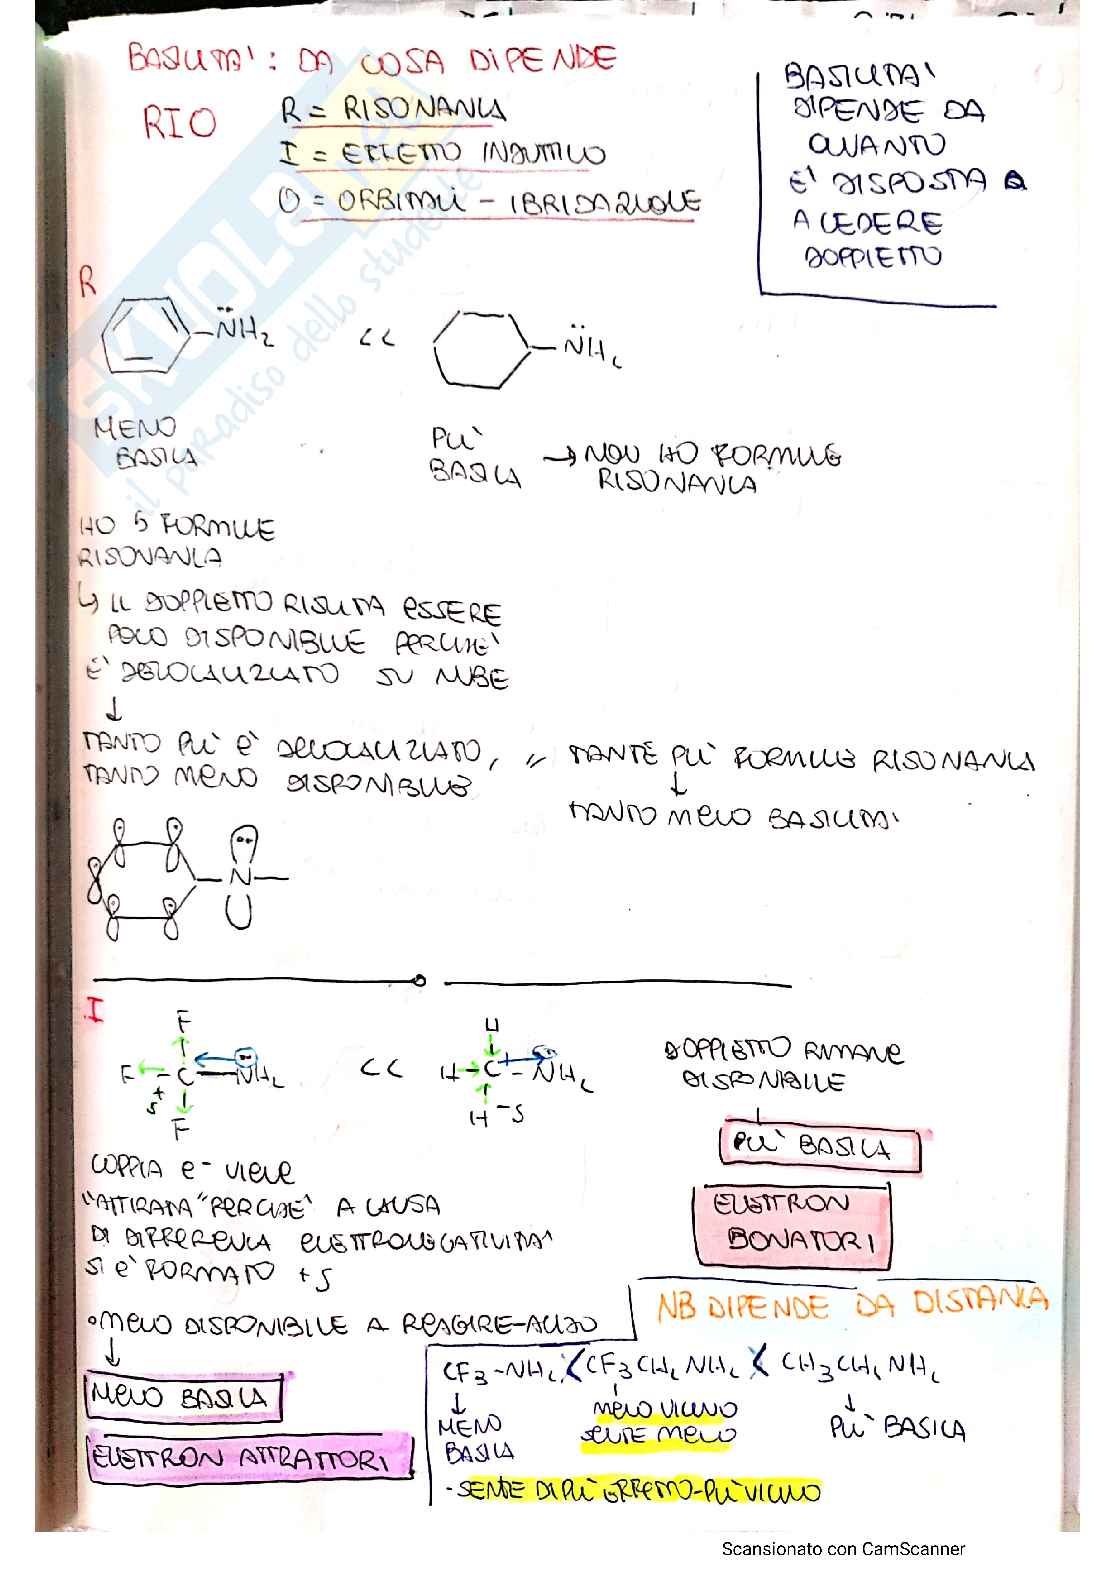 BASICITA': DA COSA DIPENDE
RIO
R = RISONANZA
I = EFFETTO INDUTTIVO
O = ORBITALI - IBRIDAZIONE
BASICITA'
DIPENDE DA
QUANTO
E' DISPOSTA
A CEDERE
DOPPIETTO
R
NH2 << NH2
MENO
BASICA
PIÙ
BASICA → NON HO FORMULE
RISONANZA
HO 5 FORMULE
RISONANZA
↳ IL DOPPIETTO RISULTA ESSERE
POCO DISPONIBILE PERCHE'
E' DELOCALIZZATO SU NUBE
↓
TANTO PIÙ E' DELOCALIZZATO, // TANTE PIÙ FORMULE RISONANZA
TANTO MENO DISPONIBILE
↓
TANTO MENO BASICITA'
N
I
F
F C NH2
+ δ
F
<<
H
H C - NH2
H - δ
DOPPIETTO RIMANE
DISPONIBILE
PIÙ BASICA
ELETTRON
DONATORI
COPPIA e- VIENE
"ATTIRATA" PERCHE' A CAUSA
DI DIFFERENZA ELETTRONEGATIVITA'
SI E' FORMATO + δ
• MENO DISPONIBILE A REAGIRE-ACIDO
↓
MENO BASICA
ELETTRON ATTRATTORI
NB DIPENDE DA DISTANZA
CF3-NH2 < CF3CH2NH2 < CH3CH2NH2
↓
MENO
BASICA
MENO VICINO
SENTE MENO
↓
PIÙ BASICA
- SENTE DI PIÙ EFFETTO-PIÙ VICINO
Scansionato con CamScanner
SKUOLA.net
il paradiso dello studente